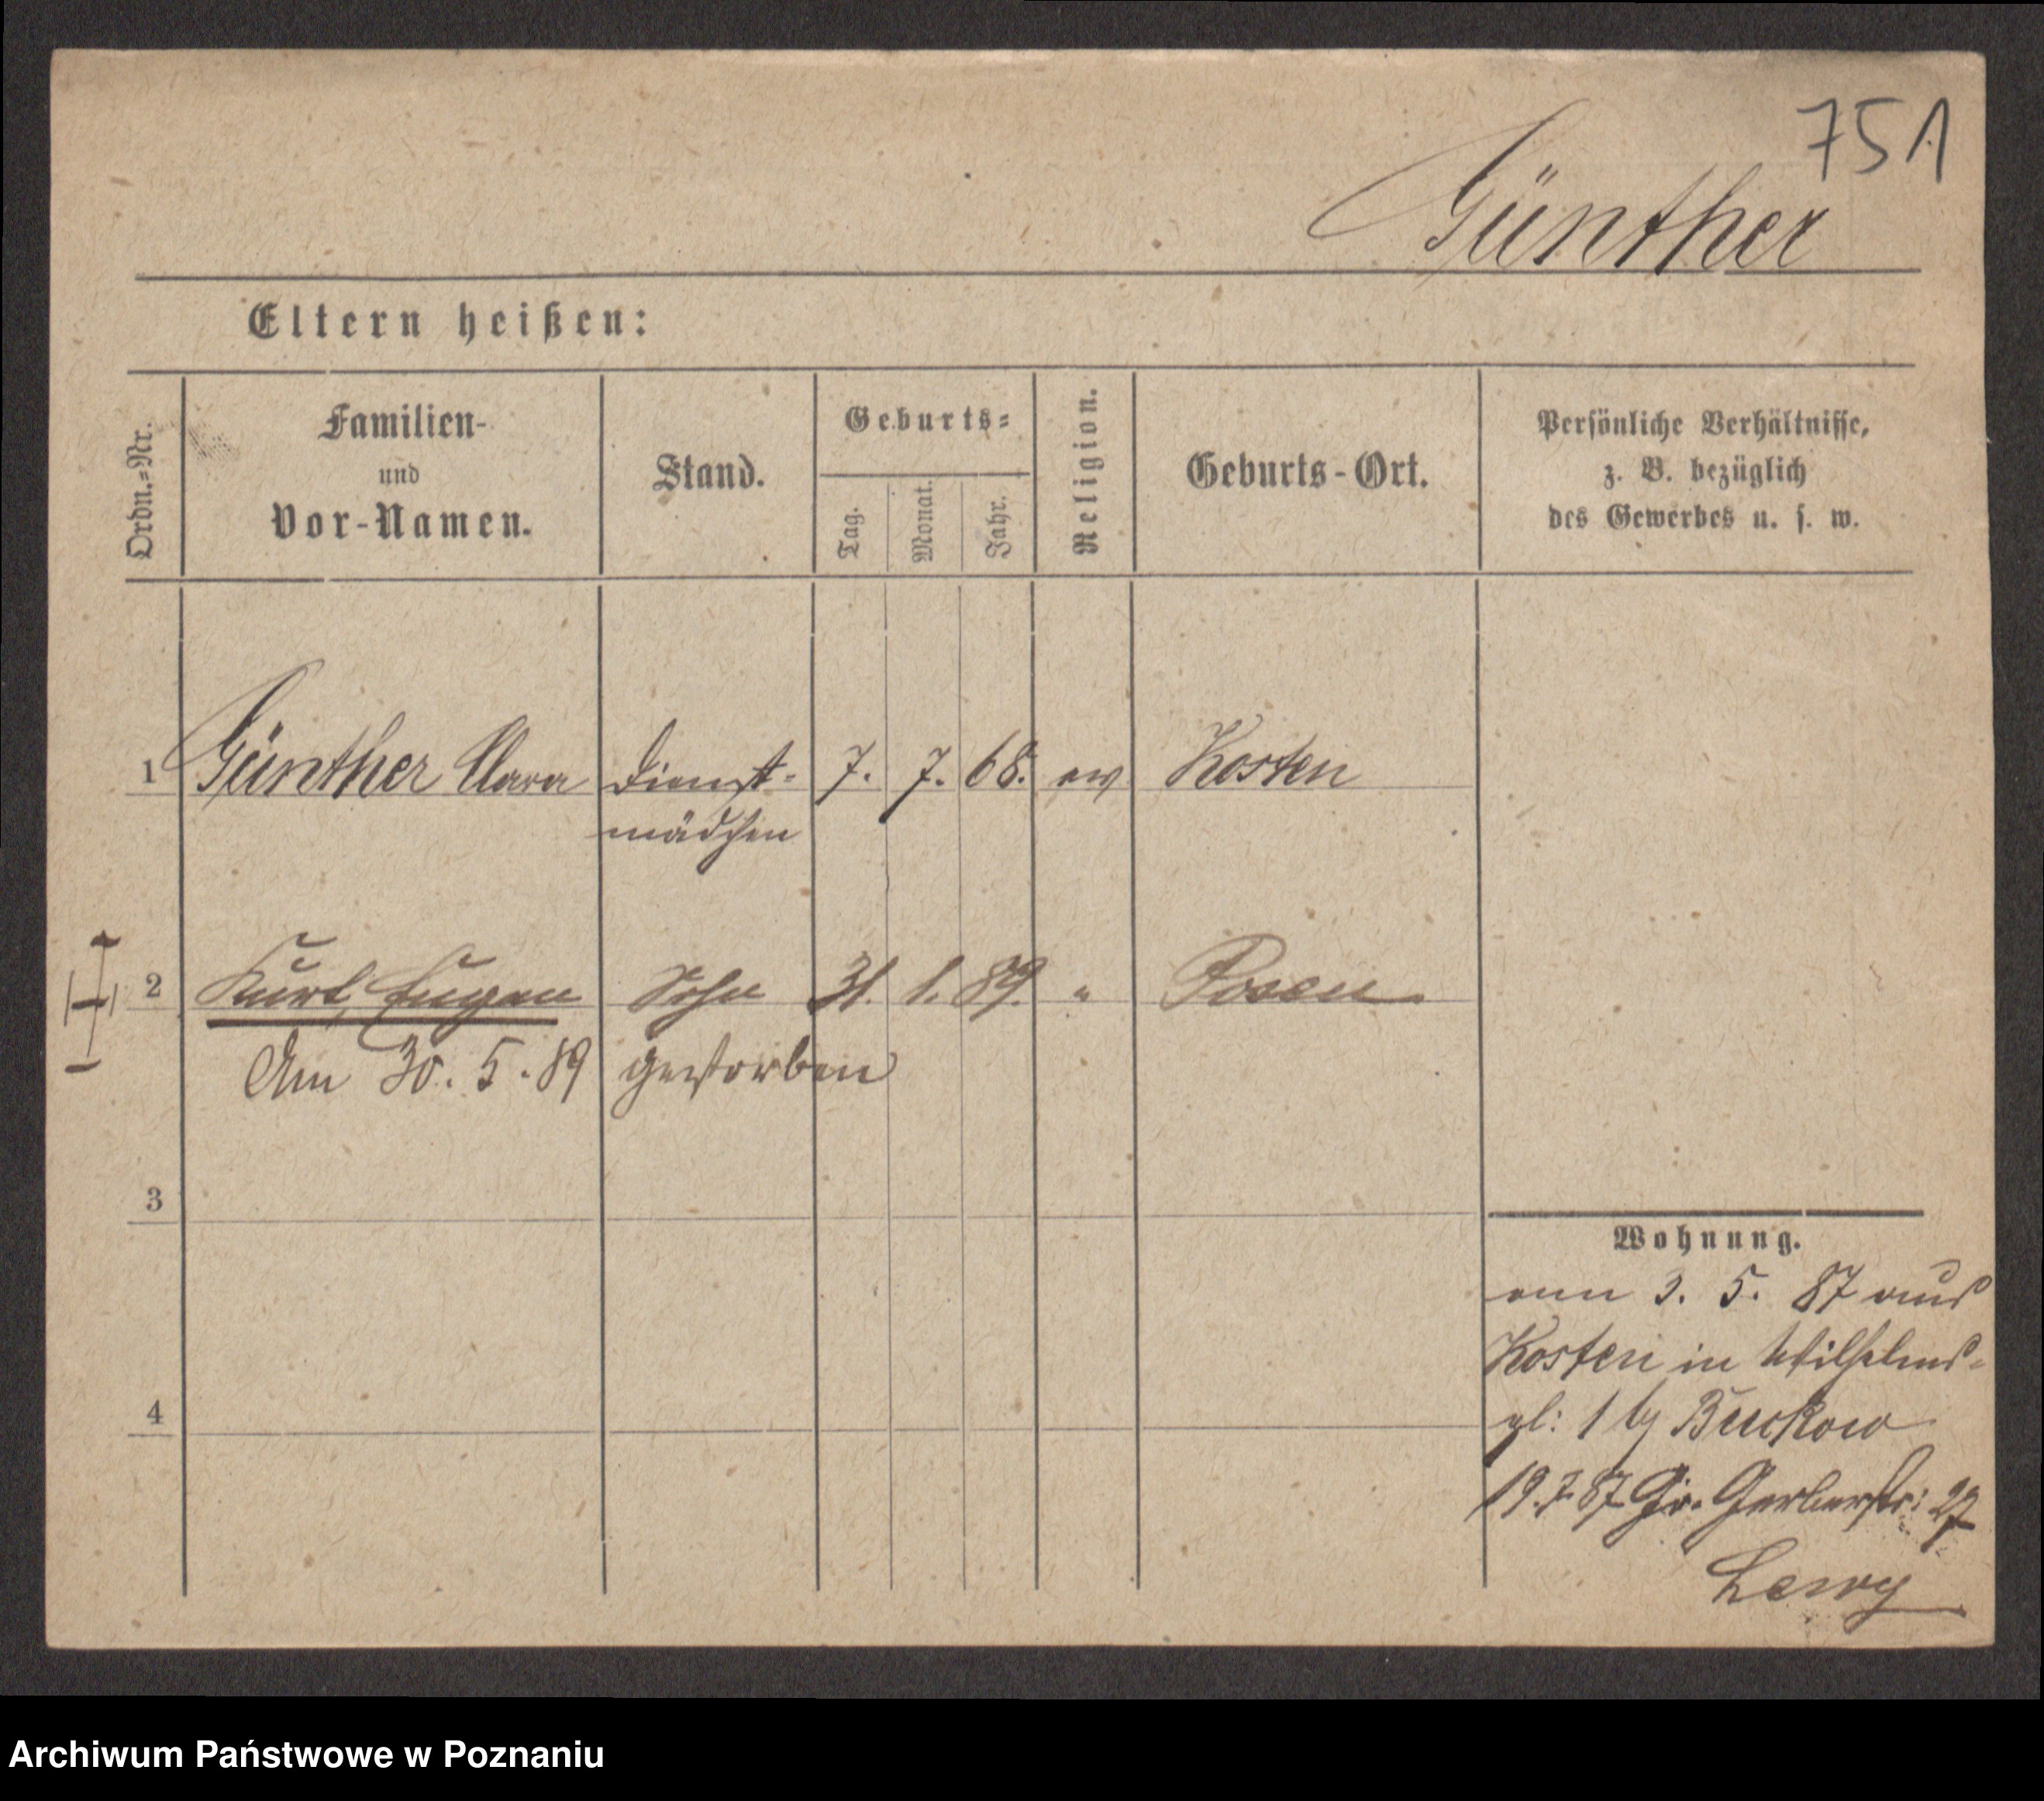 751
Günther
Eltern heißen:
Ordn.-Nr.
Familien-
und
Vor-Namen.
Stand.
Geburts-
Tag.
Monat.
Jahr.
Religion.
Geburts-Ort.
Persönliche Verhältnisse,
z. B. bezüglich
des Gewerbes u. s. w.
1 Günther Clara Dienst- 7. 7. 68. ev Kosten
mädchen
2 Kurt, Eugen Sohn 31. 1. 89. " Posen
Am 30. 5. 89 gestorben
3
4
Wohnung.
3. 5. 87 aus
Kosten in Wilhelms-
pl: 1 by Buckow
19. 7. 87 Gr. Gerberstr: 27
Lewy
Archiwum Państwowe w Poznaniu